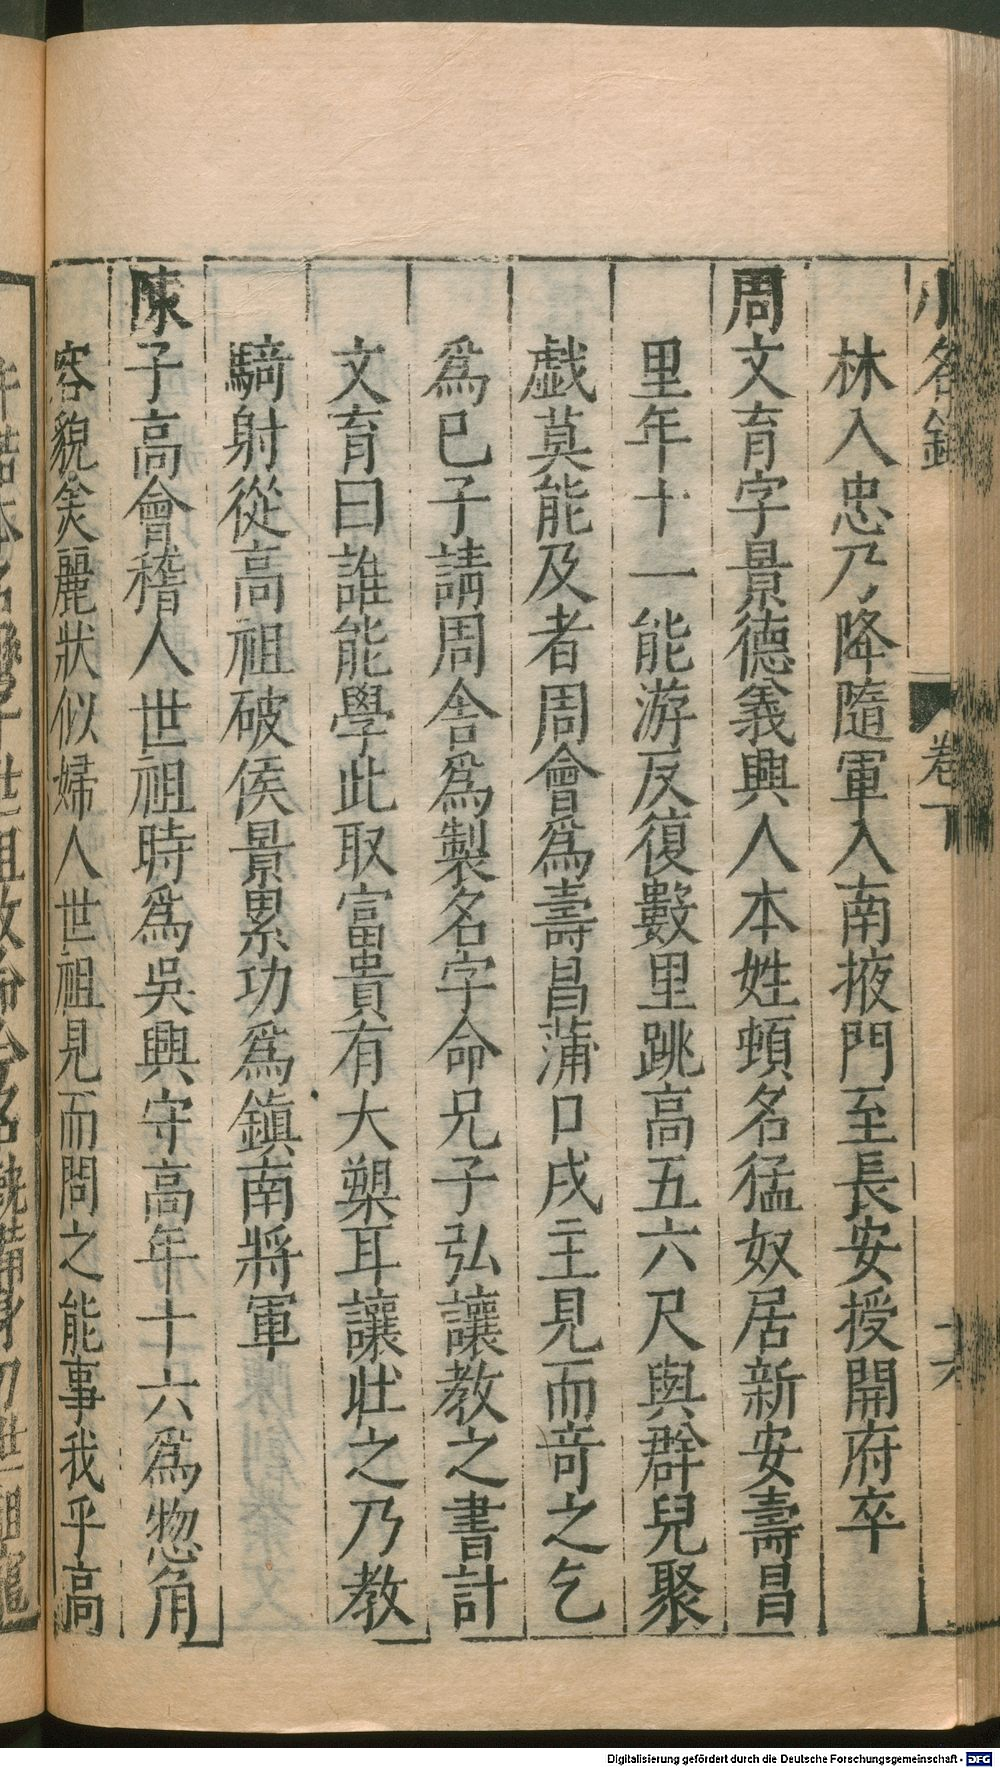 小名錄 卷下
林入忠乃降隨軍入南掖門至長安授開府卒
周文育字景德義興人本姓頓名猛奴居新安壽昌
里年十一能游反復數里跳高五六尺與群兒聚
戯莫能及者周會爲壽昌蒲口戍主見而竒之乞
爲已子請周舍爲製名字命兄子弘讓教之書計
文育曰誰能學此取富貴有大槊耳讓壯之乃教
騎射從高祖破侯景累功爲鎮南將軍
陳子高會稽人世祖時爲吳興守高年十六爲惣角
容貌㷇麗狀似婦人世祖見而問之能事我乎高
Digitalisierung gefördert durch die Deutsche Forschungsgemeinschaft - DFG